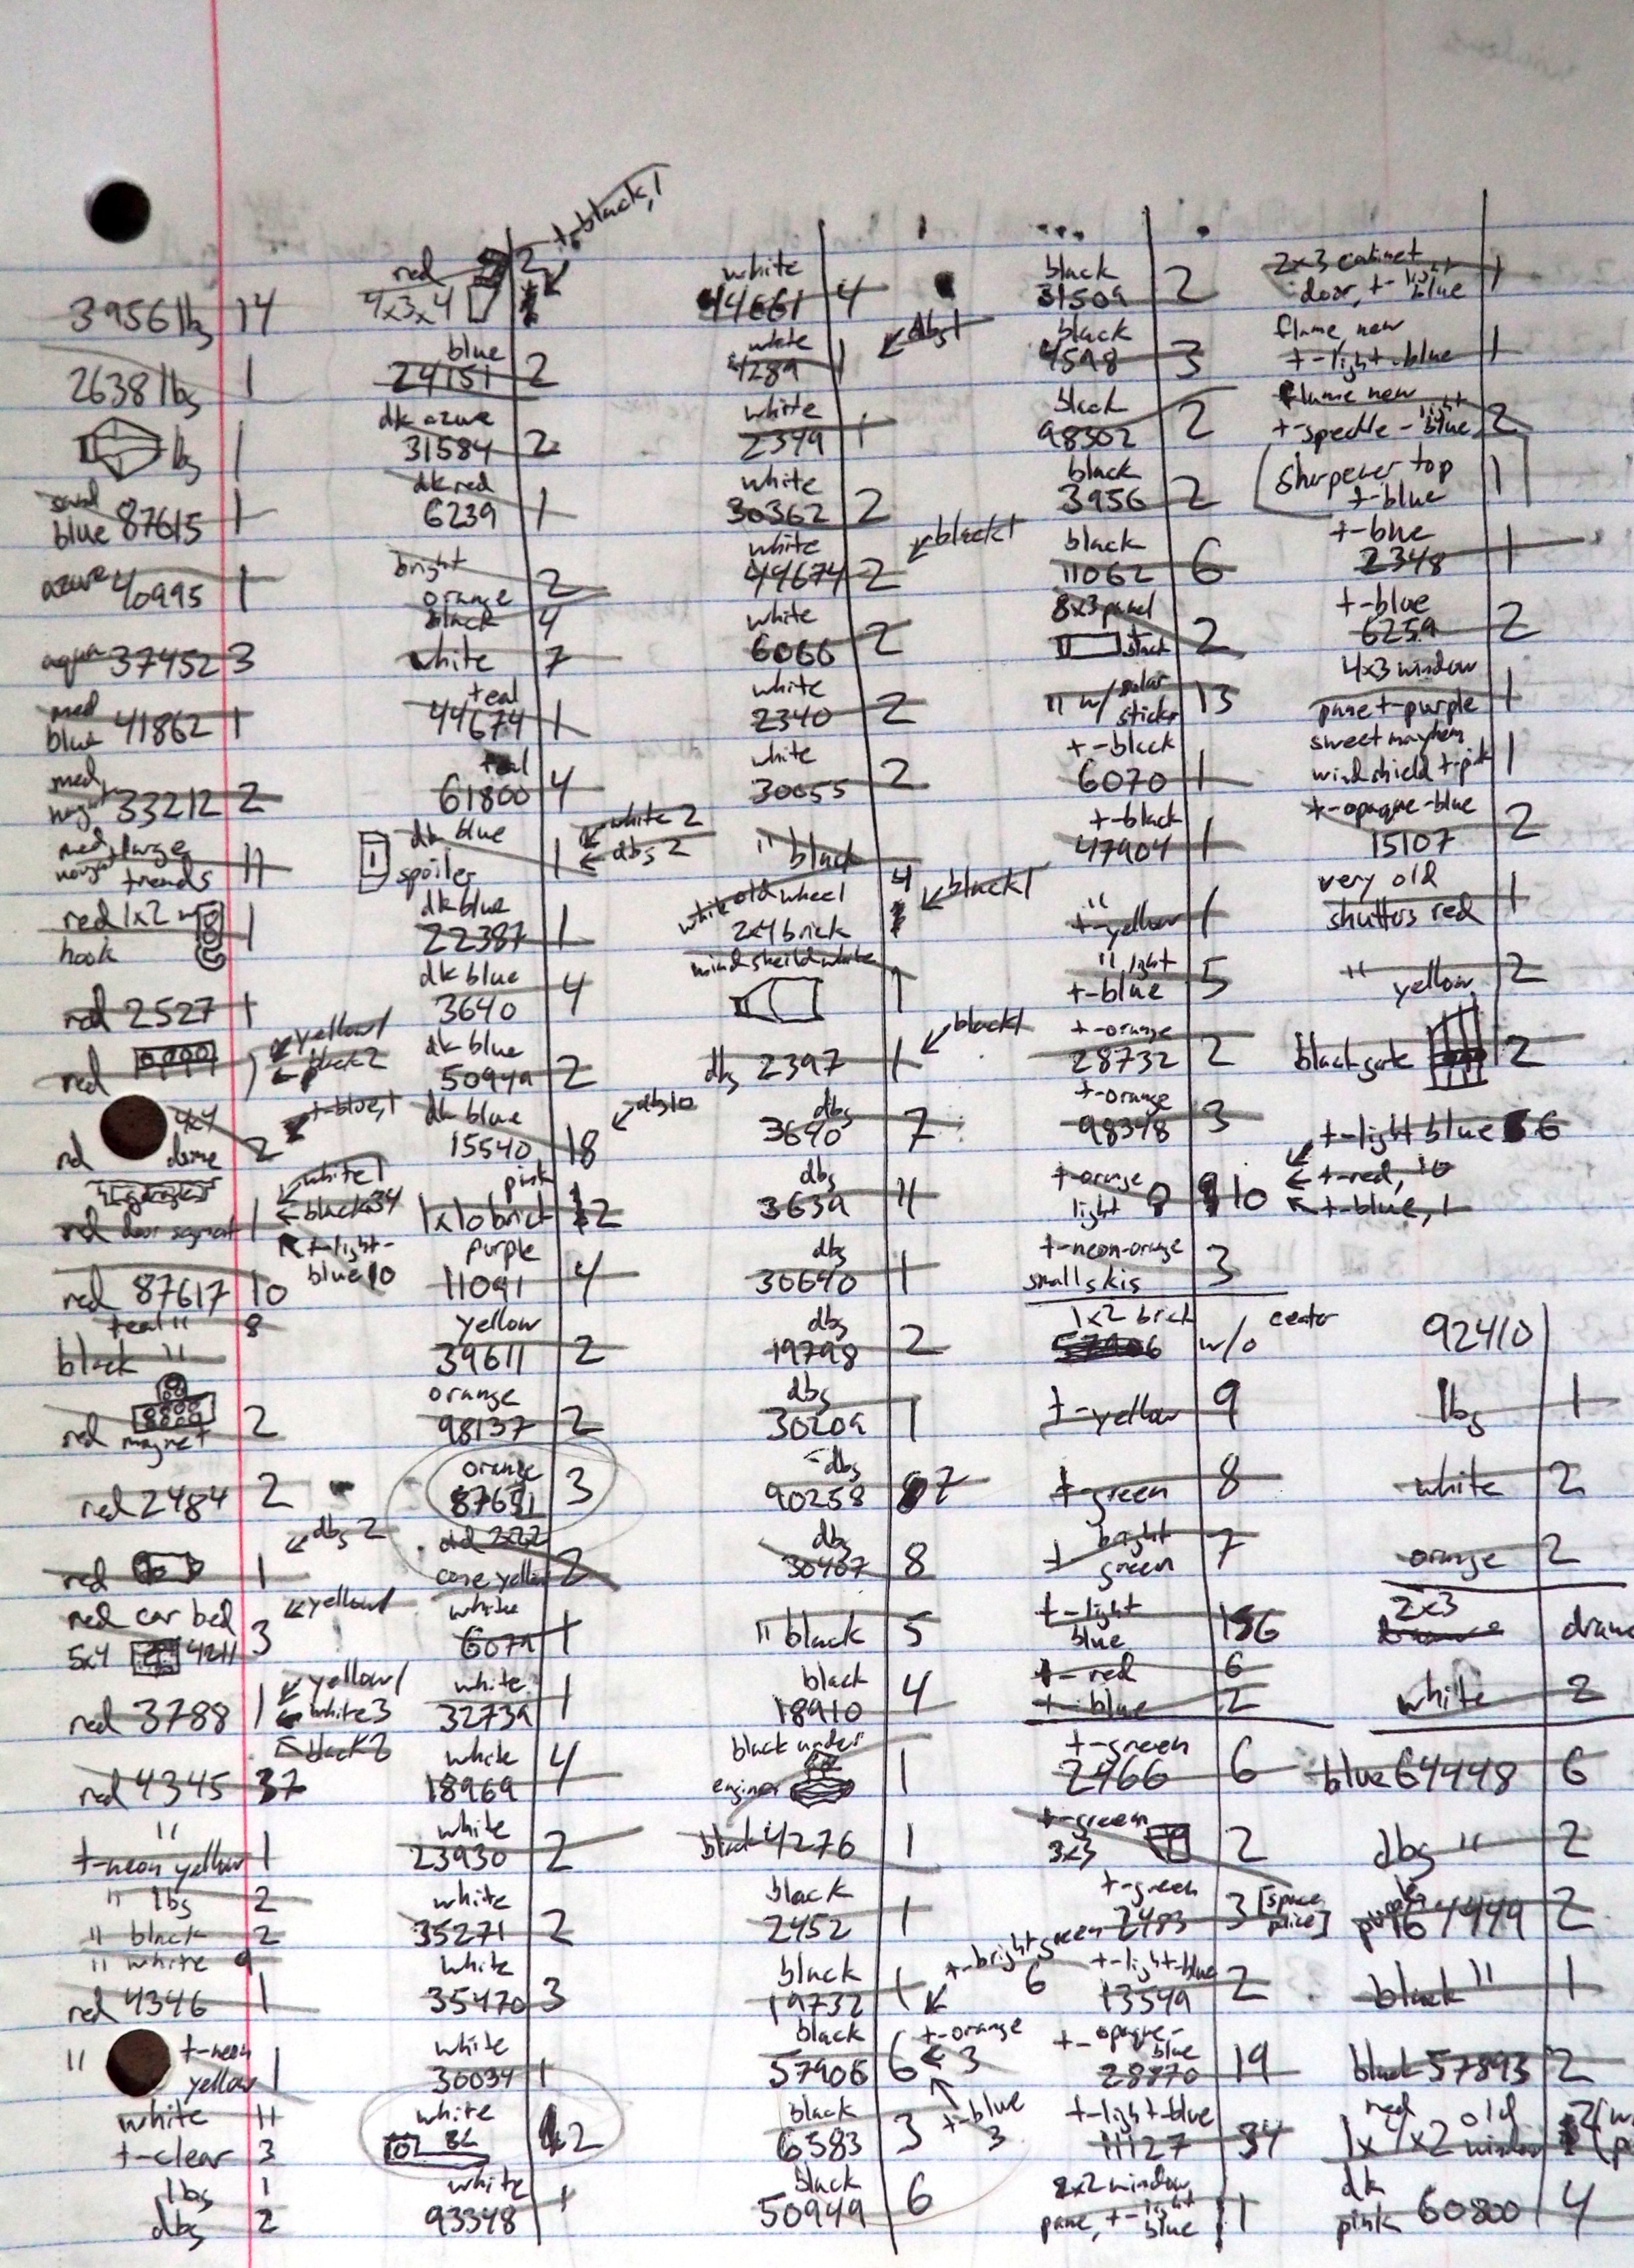 3956 lbg 14
2638 lbg 1
lbg 1
sand
blue 87615 1
azure 40995 1
aqua 37452 3
med
blue 41862 1
med
nougat 33212 2
med large
nougat treads 11
red 1x2 w/
hook 1
red 2527 1
red 1 yellow 1
black 2
red 4x4
dome 2 t-blue, 1
red door segment 1 white 1
black 34
t-light-
blue 10
red 87617 10
teal " 8
black "
red magnet 2
red 2484 2
red 1 dbg 2
red car bed
5x4 4211 3 yellow 1
red 3788 1 yellow 1
white 3
black 2
red 4345 37
"
t-neon yellow 1
" lbg 2
" black 2
" white 9
red 4346 1
" t-neon
yellow 1
white 11
t-clear 3
lbg 1
dbg 2
red
4x3x4 2 t-black, 1
blue
24151 2
dk azure
31584 2
dk red
6239 1
bright
orange 2
black 4
white 7
teal
44674 1
teal
61800 4
dk blue
spoiler 1 white 2
dbg 2
dk blue
22387 1
dk blue
3640 4
dk blue
50949 2
dk blue
15540 18 dbg 10
pink
1x10 brick 12
purple
11091 4
yellow
39611 2
orange
98137 2
orange
87681 3
old 2x2x2
cone yellow 2
white
6079 1
white
32739 1
white
18969 4
white
23930 2
white
35271 2
white
35470 3
white
30034 1
white
2
white
93348 1
white
44661 4
white
4289 1 dbg 1
white
2349 1
white
30362 2
white
44674 2 black 1
white
6066 2
white
2340 2
white
30055 2
" black
4
white old wheel
2x4 brick black 1
windsheild white
1
dbg 2397 1 black 1
dbg
3640 7
dbg
3639 11
dbg
30640 1
dbg
19798 2
dbg
30209 1
dbg
90258 7
dbg
30407 8
" black 5
black
18910 4
black under
engine 1
black 4276 1
black
2452 1
black
19732 1
black
57906 6 t-bright green 6
t-orange
3
t-blue
3
black
6583 3
black
50949 6
black
31509 2
black
4598 3
black
98302 2
black
3956 2
black
11062 6
8x3 panel
black 2
" w/ solar
sticker 13
t-black
6070 1
t-black
47904 1
"
t-yellow 1
" light
t-blue 5
t-orange
28732 2
t-orange
98348 3
t-orange
light 10 t-light blue 6
t-red, 10
t-blue, 1
t-neon-orange
small skis 3
1x2 brick
w/o center
t-yellow 9
t-green 8
t-bright
green 7
t-light
blue 156
t-red 6
t-blue 2
t-green
2466 6
t-green
3x3 2
t-green
2483 3 [space
police]
t-light-blue
13549 2
t-opaque-
blue
28870 19
t-light-blue
11127 34
2x2 window
pane, t-light
blue 1
2x3 cabinet
door, t-light
blue 1
flame new
t-light-blue 1
flame new
t-speckle-light
blue 2
sharpener top
t-blue 1
t-blue
2348 1
t-blue
6259 2
4x3 window
pane t-purple 1
sweet mayhem
windshield t-pink 1
t-opaque-blue
15107 2
very old
shutters red 1
" yellow 2
black gate 2
92410
lbg 1
white 2
orange 2
2x3
white 2
blue 64448 6
dbg " 2
purple 64449 2
black " 1
black 57893 2
red
1x4x2 old window 2
dk
pink 60800 4